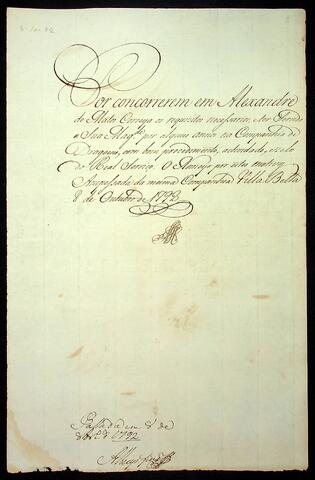 Por concorrerem em Alexandre
de Matos Correya os requizitos necessarios, e ter servido
a Sua Mag.e por alguns annos na Companhia de
Dragoens, com bom procedimento, actividade, e zelo
do Real Serviço. O Nomeyo por estes motivos
Anspessada da mesma Companhia Villa Bella
8 de Outubro de 1792
Passada em 8 de
de 1792